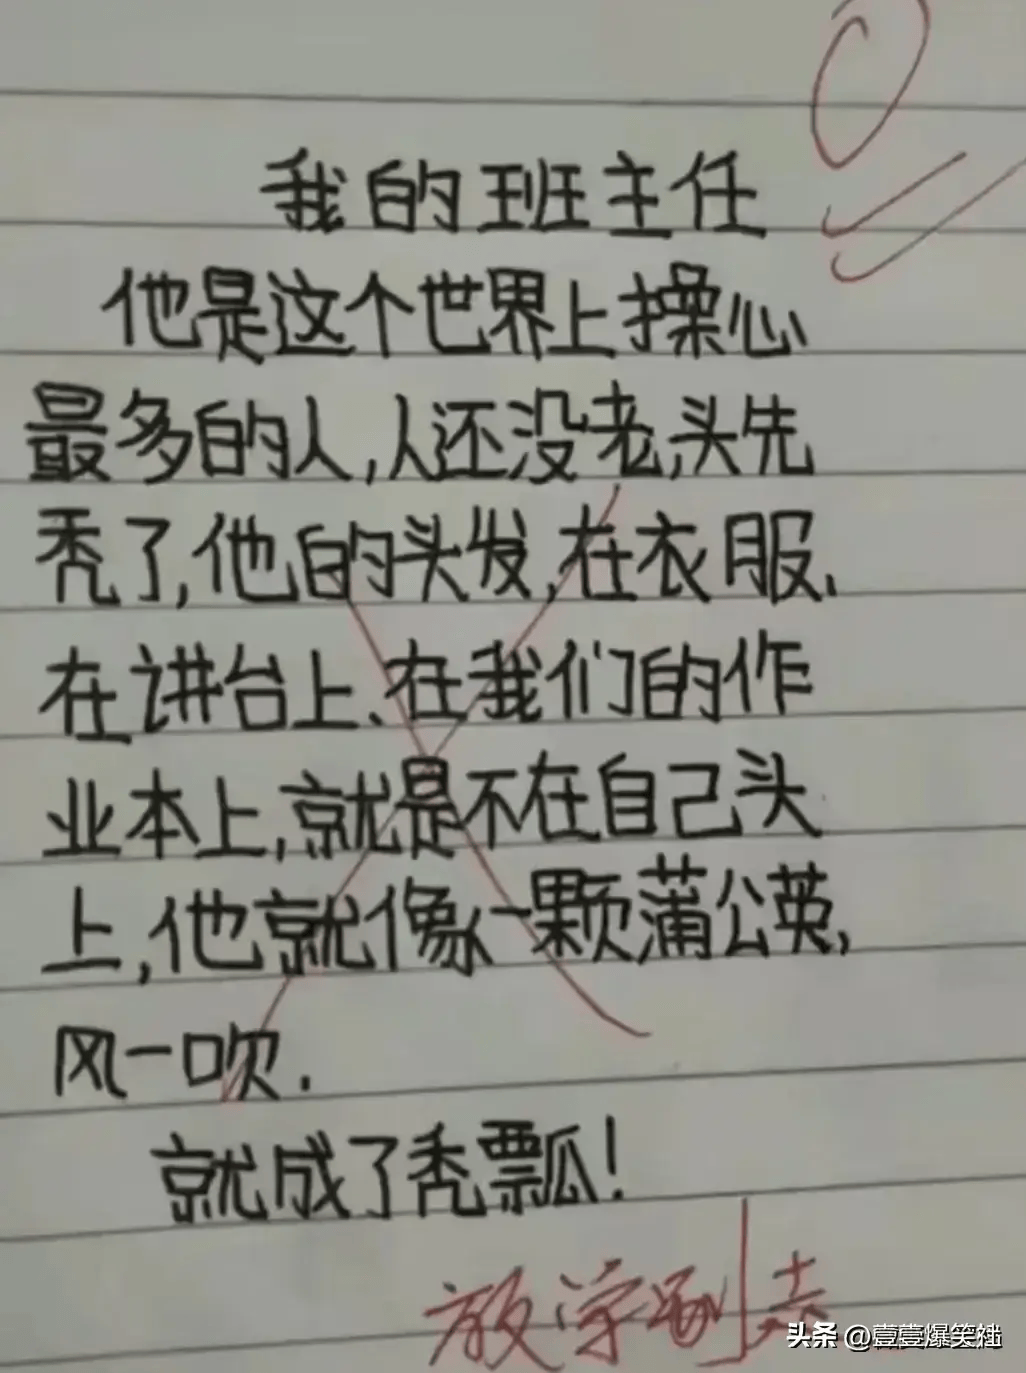 0
我的班主任
他是这个世界上操心
最多的人,人还没老,头先
秃了,他的头发,在衣服、
在讲台上、在我们的作
业本上,就是不在自己头
上,他就像一颗蒲公英,
风一吹.
就成了秃瓢!
放学别走
头条 @壹壹爆笑社